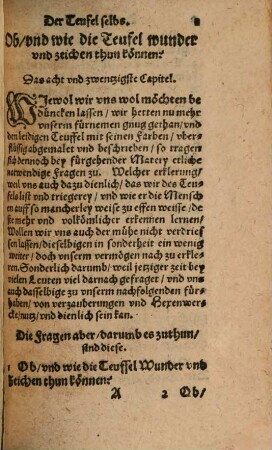 Der Teufel selbs.
Ob/vnd wie die Teufel wunder
vnd zeichen thun können?
Das acht vnd zwentzigste Capitel.
WJewol wir vns wol möchten be
düncken lassen/ wir hetten nu mehr
vnserm fürnemen gnug gethan/ vnd
den leidigen Teuffel mit seinen Farben/ vber-
flüssig abgemalet vnd beschrieben/ so tragen
sich dennoch bey fürgehender Matery etliche
notwendige Fragen zu. Welcher erklerung/
weil vns auch dazu dienlich/ das wir des Teu-
fels list vnd triegerey/ vnd wie er die Mensch
en auff so mancherley weise zu effen weise/ de-
ste mehr vnd volkömlicher erkennen lernen/
Wollen wir vns auch der mühe nicht verdrie
sen lassen/ dieselbigen in sonderheit ein wenig
weiter/ doch vnserm vermögen nach zu erkle-
ren. Sonderlich darumb/ weil jetziger zeit bey
vielen Leuten viel darnach gefraget/ vnd vns
auch dasselbige zu vnserm nachfolgenden für-
haben/ von verzauberungen vnd Hexenwer-
cke/ nutz/ vnd dienlich sein kan.
Die Fragen aber/ darumb es zuthun/
sind diese.
1 Ob/ vnd wie die Teuffel Wunder vnd
zeichen thun können?
A 2 Ob/